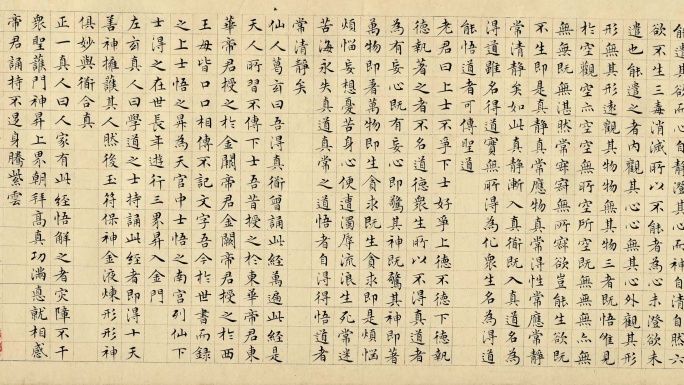 其心而神自清自然六
欲不生三毒消滅所以不能者為心未澄欲未
遣也能遣之者內觀其心心無其心外觀其形
形無其形遠觀其物物無其物三者既悟惟見
於空觀空亦空空無所空所空既無無無亦無
無無既無湛然常寂寂無所寂欲豈能生欲既
不生即是真靜真常應物真常得性常應常靜
常清靜矣如此真靜漸入真道既入真道名為
得道雖名得道實無所得為化眾生名為得道
能悟道者可傳聖道
老君曰上士不爭下士好爭上德不德下德執
德執著之者不名道德眾生所以不得真道者
為有妄心既有妄心即驚其神既驚其神即著
萬物即著萬物即生貪求既生貪求即是煩惱
煩惱妄想憂苦身心便遭濁辱流浪生死常
苦海永失真道真常之道悟者自得得悟道者
常清靜矣
仙人葛玄曰吾得真道曾誦此經萬遍此經是
天人所習不傳下士吾昔授之於東華帝君東
華帝君授之於金闕帝君金闕帝君授之於西
王母皆口口相傳不記文字吾今於世書而錄
之上士悟之昇為天官中士悟之南宮列仙下
士得之在世長年遊行三界昇入金門
左玄真人曰學道之士持誦此經者即得十天
善神擁護其人然後玉符保神金液煉形形神
俱妙與道合真
正一真人曰人家有此經悟解之者災障不干
眾聖護門神昇上界朝拜高真功滿德就相感
帝君誦持不退身騰紫雲